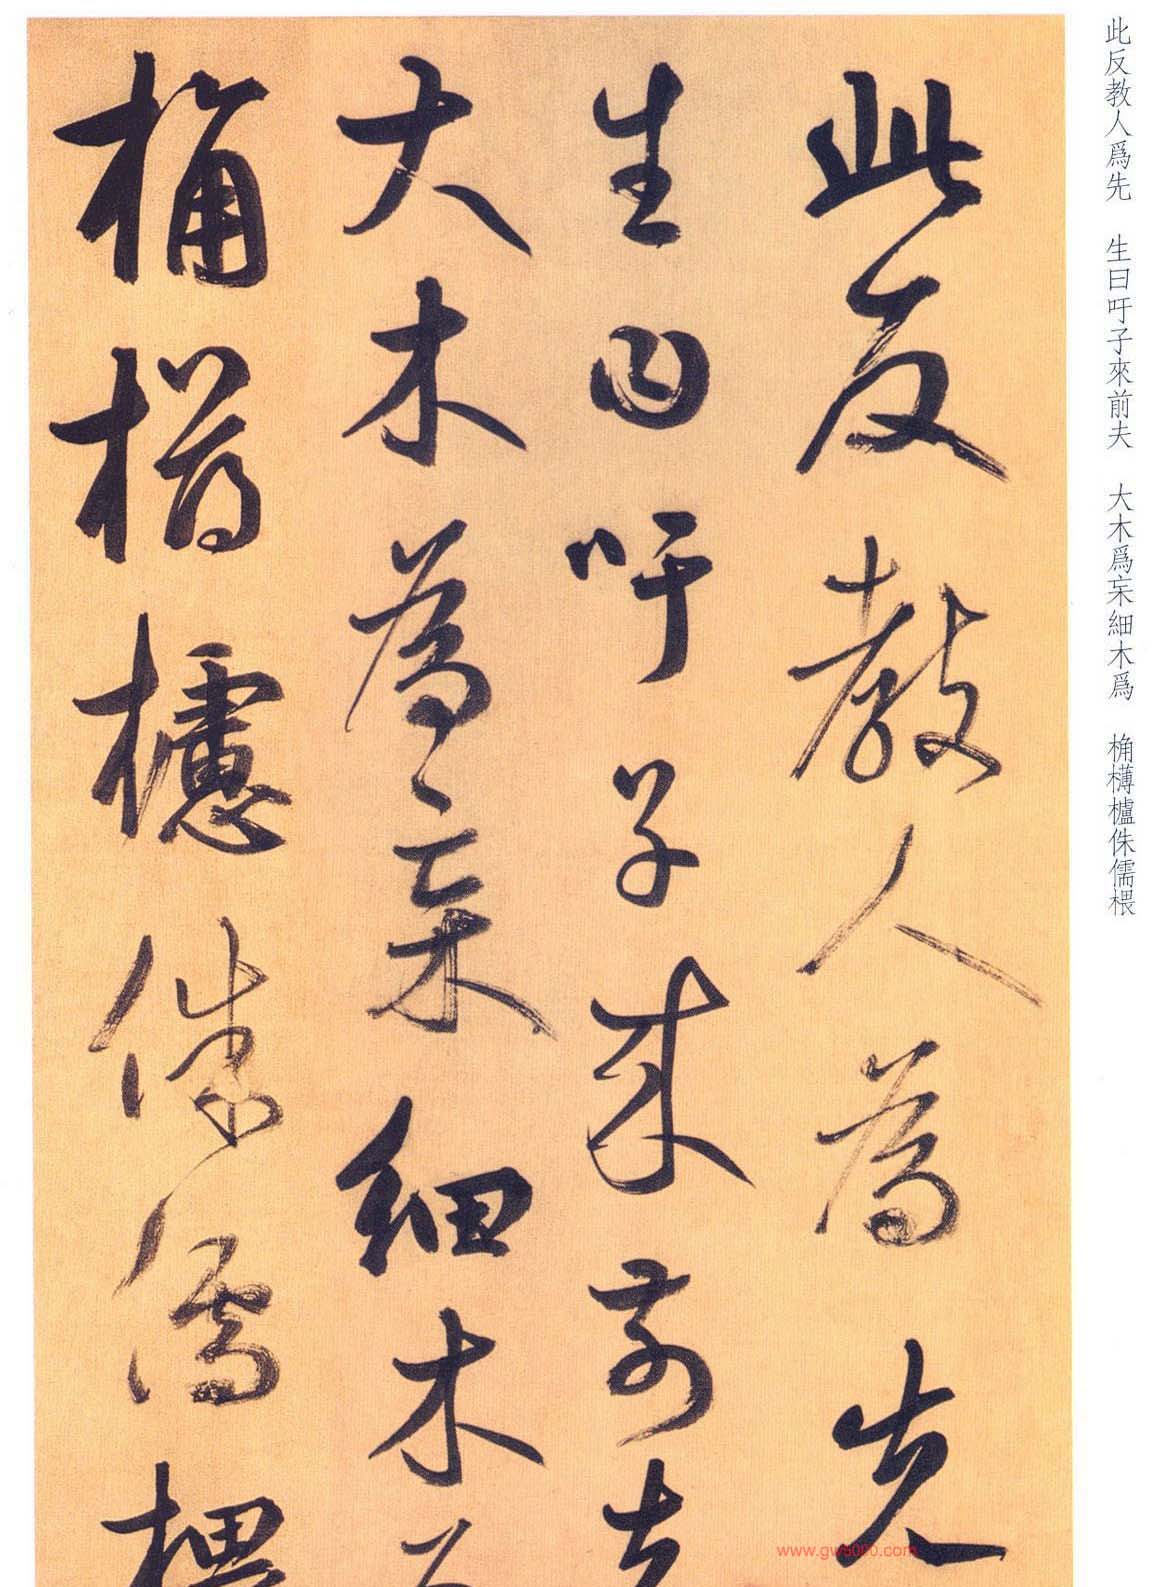 此反教人爲先　生曰吁子來前夫　大木爲杗細木爲　桷欂櫨侏儒椳
此反教人為先
生曰吁子來前夫
大木為杗細木為
桷欂櫨侏儒椳